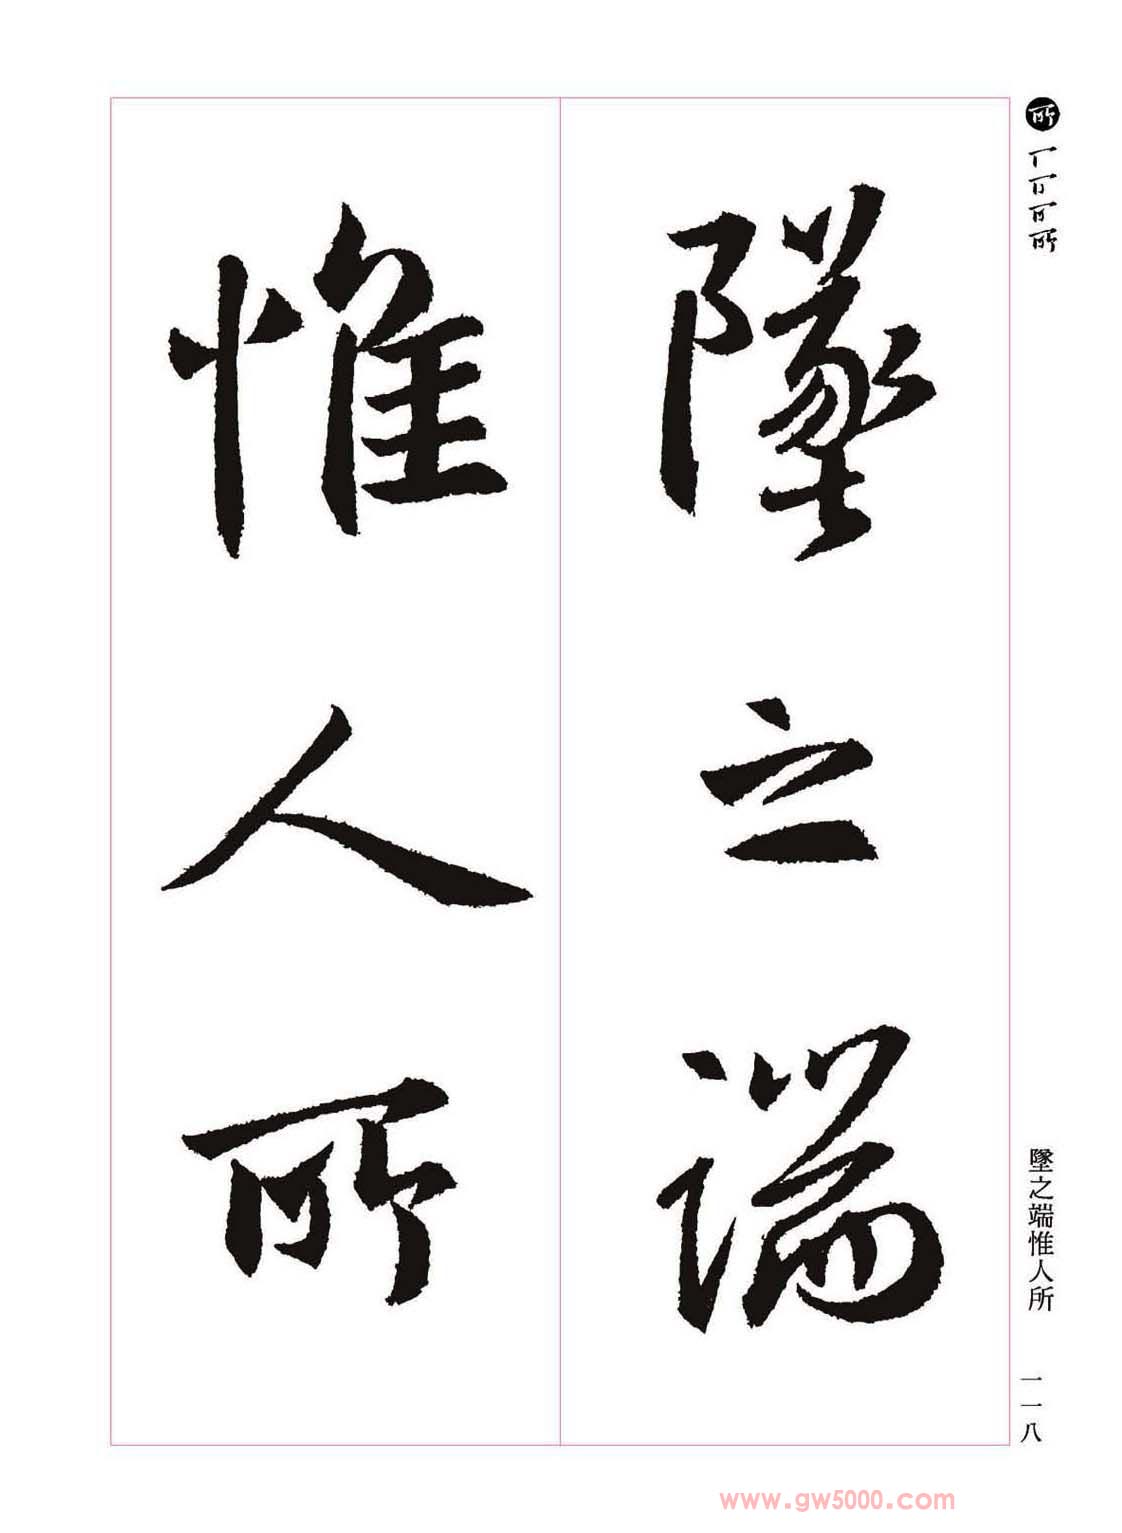 墜之端
惟人所
所
墜之端惟人所
一一八
www.gw5000.com